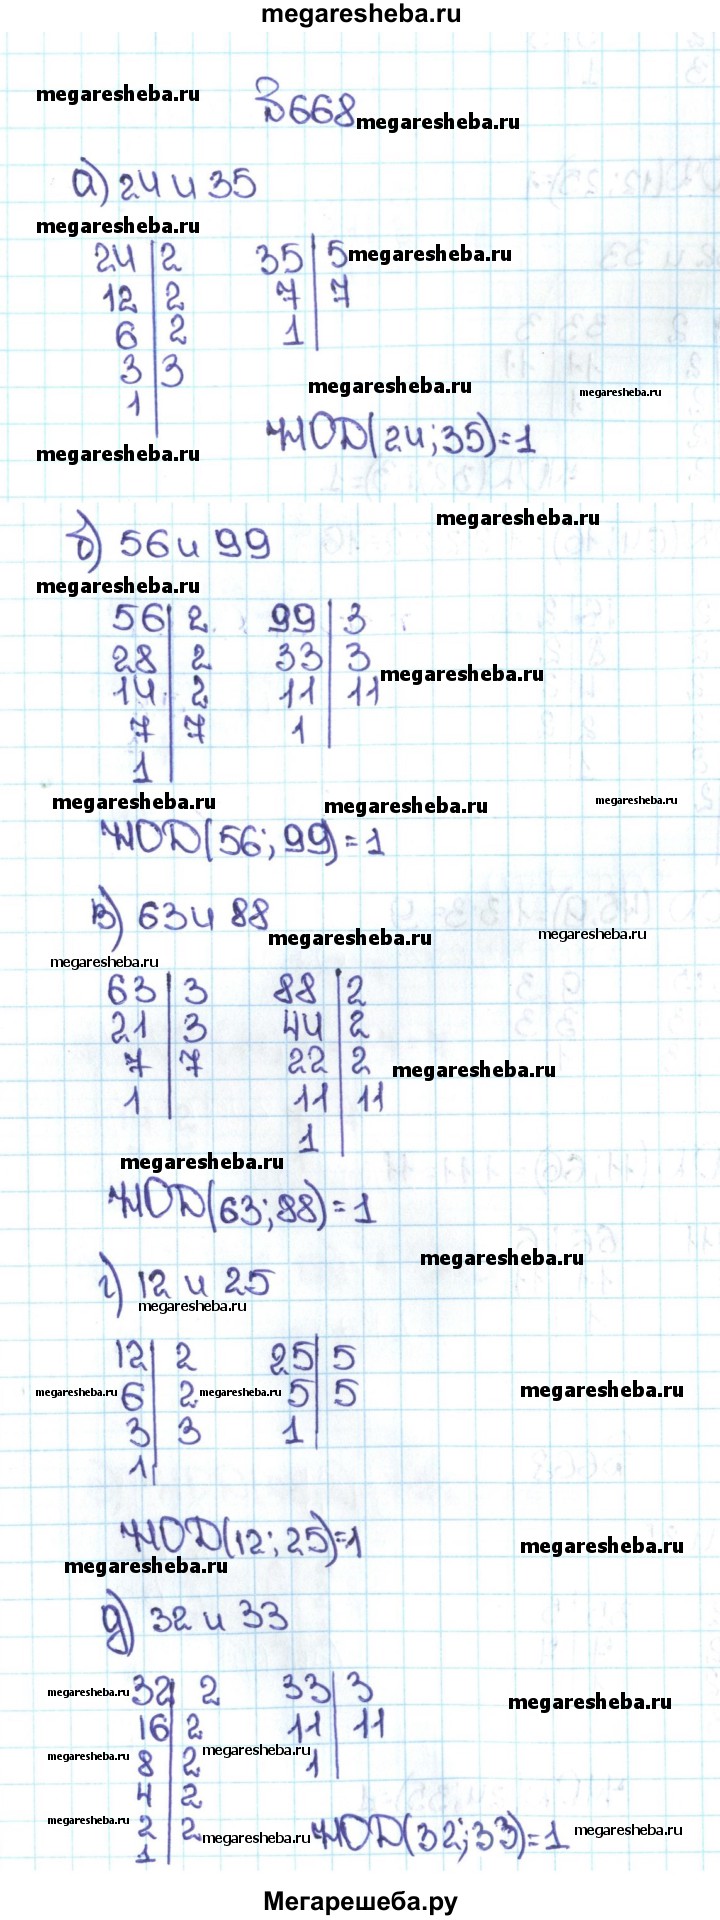 megaresheba.ru
megaresheba.ru
В668 megaresheba.ru
а) 24 и 35
megaresheba.ru
24 | 2 35 | 5 megaresheba.ru
12 | 2 7 | 7
6 | 2 1 |
3 | 3
1 |
megaresheba.ru megaresheba.ru
НОD(24;35)=1
megaresheba.ru
megaresheba.ru
б) 56 и 99
megaresheba.ru
56 | 2 99 | 3
28 | 2 33 | 3 megaresheba.ru
14 | 2 11 | 11
7 | 7 1 |
1 |
megaresheba.ru megaresheba.ru megaresheba.ru
НОD(56;99)=1
в) 63 и 88
megaresheba.ru megaresheba.ru
megaresheba.ru
63 | 3 88 | 2
21 | 3 44 | 2
7 | 7 22 | 2 megaresheba.ru
1 | 11 | 11
1 |
megaresheba.ru
НОD(63;88)=1
megaresheba.ru
г) 12 и 25
megaresheba.ru
12 | 2 25 | 5
megaresheba.ru 6 | 2 megaresheba.ru 5 | 5 megaresheba.ru
3 | 3 1 |
1 |
НОD(12;25)=1 megaresheba.ru
megaresheba.ru
д) 32 и 33
megaresheba.ru 32 | 2 33 | 3 megaresheba.ru
16 | 2 11 | 11
megaresheba.ru 8 | 2 megaresheba.ru 1 |
4 | 2
megaresheba.ru 2 | 2 megaresheba.ru НОD(32;33)=1 megaresheba.ru
1 |
Мегарешеба.ру